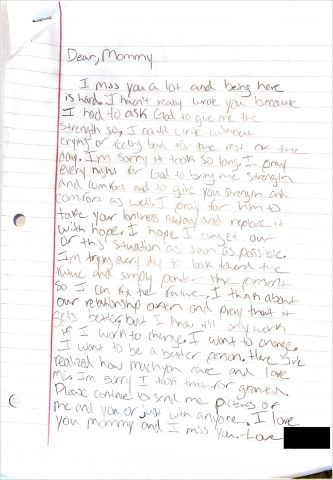 Dear, Mommy
I miss you a lot and being here
is hard. I havn't really wrote you because
I had to ask God to give me the
strength so, I could write without
crying or feeling bad for the rest of the
day. I'm sorry it took so long. I pray
every night for God to bring me strength
and comfort and to give you strength and
comfort as well. I pray for him to
take your lonliness away and replace it
with hope. I hope I can get out
of this situation as soon as possible.
I'm trying every day to look toward the
future and simply ponder the present
so I can fix the future. I think about
our relationship often and pray that it
gets better, but I know it'll only work
if I work to change. I want to change.
I want to be a better person. Here I've
realized how much you care and love
me. I'm sorry I took this for granted.
Please continue to send me pictures of
me and you or just with anyone. I love
you mommy and I miss you. -Love